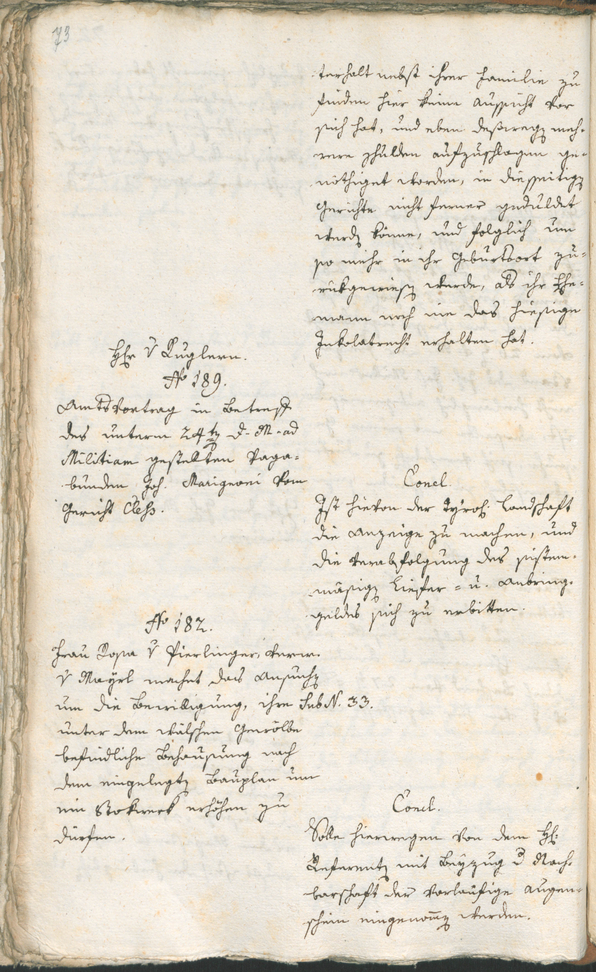 73
terhalt nebst ihrer Familie zu
finden hier keine Aussicht vor
sich hat, und eben deßwegen meh-
rere Schulden aufzuschlagen ge-
nöthiget worden, in diesseitigen
Gerichte nicht ferner geduldet
werden könne, und folglich um
so mehr in ihr Geburtsort zu-
rükgewiesen wurde, als ihr Ehe-
mann noch nie das hiesige
Inkolatrecht erhalten hat.
Hr. v Kuglern.
No 189.
Amtsvortrag in Betreff
des unterm 24ten d. M. ad
Militiam gestellten Vaga-
bunden Joh. Marignoni vom
Gericht Cleß.
Concl.
Ist hievon der Tyrol. Landschaft
die Anzeige zu machen, und
die Verabfolgung des sistem-
mäsigen Liefer- u. Anbring-
geldes sich zu erbitten.
No 182.
Frau Rosa v Pierlinger, verw.
v Mayrl machet das Ansuchen
um die Bewilligung, ihre Sub N. 33.
unter dem wälschen Gewölbe
befindliche Behausung nach
dem eingelegten Bauplan um
ein Stokwerk erhöhen zu
dürfen.
Concl.
Solle hierwegen von dem H.
Referenten mit Beyzug d Nach-
barschaft der vorläufige Augen-
schein eingenommen werden.